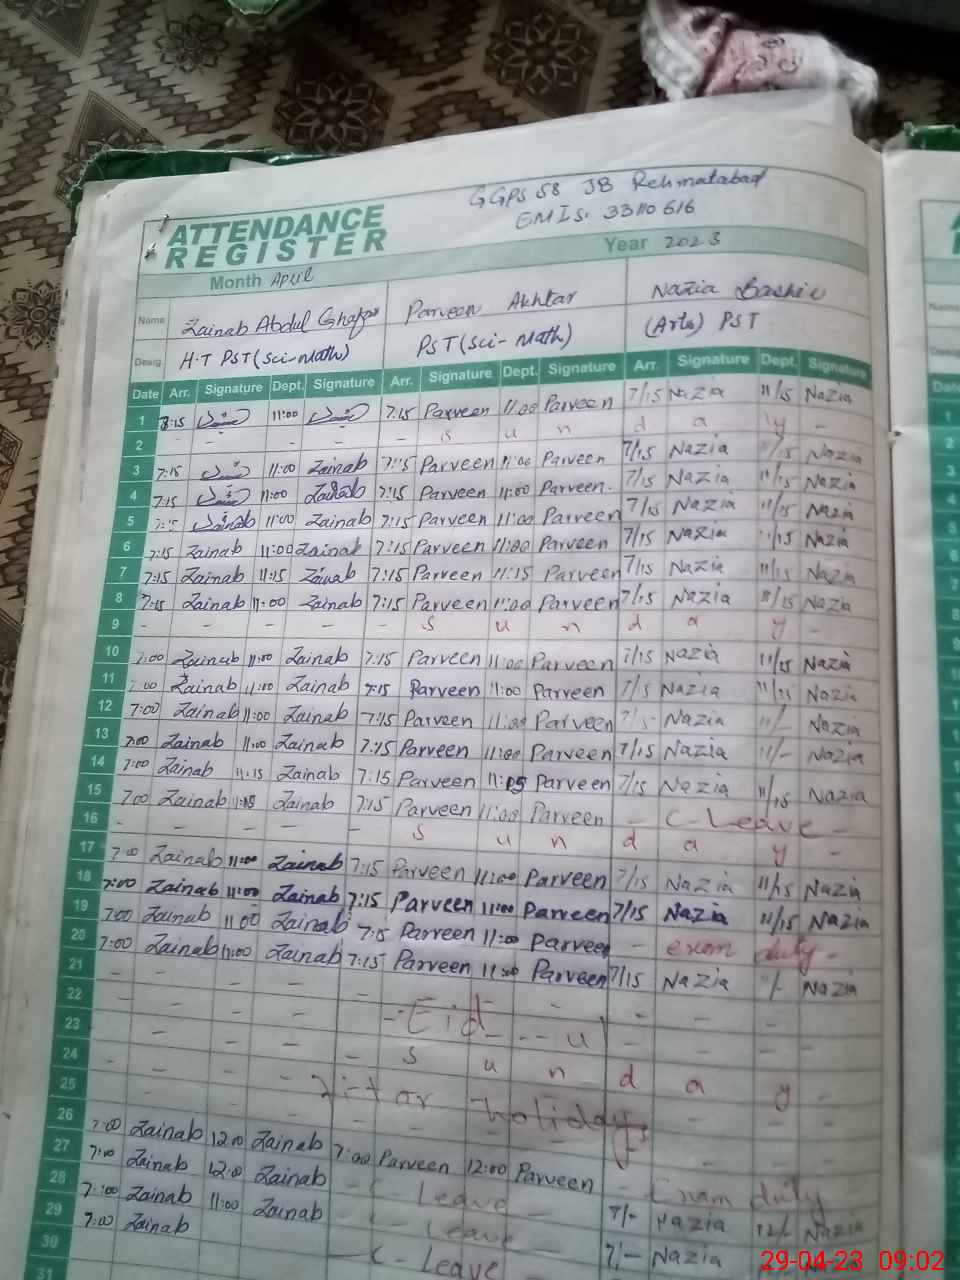 GGPS 58 JB Rehmatabad
EMIS. 33110616
ATTENDANCE
REGISTER
Year 2023
Month April
Name Zainab Abdul Ghafar Parveen Akhtar Nazia Bashir
Desig. H.T PST (Sci-Math) PST (Sci-Math) (Arts) PST
Date Arr. Signature Dept. Signature Arr. Signature Dept. Signature Arr. Signature Dept. Signature
1 11:00 7:15 Parveen 11:00 Parveen 7/15 Nazia 11/15 Nazia
2 - - - - - s u n d a y -
3 7:15 11:00 Zainab 7:15 Parveen 11:00 Parveen 7/15 Nazia 11/15 Nazia
4 7:15 11:00 Zainab 7:15 Parveen 11:00 Parveen. 7/15 Nazia 11/15 Nazia
5 Zainab 11:00 Zainab 7:15 Parveen 11:00 Parveen 7/15 Nazia 11/15 Nazia
6 7:15 Zainab 11:00 Zainab 7:15 Parveen 11:00 Parveen 7/15 Nazia Nazia
7 7:15 Zainab 11:15 Zainab 7:15 Parveen 11:15 Parveen 7/15 Nazia 11/15 Nazia
8 7:15 Zainab 11:00 Zainab 7:15 Parveen 11:00 Parveen 7/15 Nazia 11/15 Nazia
9 - - - - - s u n d a y -
10 7:00 Zainab 11:00 Zainab 7:15 Parveen 11:00 Parveen 7/15 Nazia 11/15 Nazia
11 7:00 Zainab 11:00 Zainab 7:15 Parveen 11:00 Parveen Nazia 11/15 Nazia
12 7:00 Zainab 11:00 Zainab 7:15 Parveen 11:00 Parveen Nazia 11/- Nazia
13 7:00 Zainab 11:00 Zainab 7:15 Parveen 11:00 Parveen 7/15 Nazia 11/- Nazia
14 7:00 Zainab 11:15 Zainab 7:15 Parveen Parveen 7/15 Nazia 11/15 Nazia
15 7:00 Zainab Zainab 7:15 Parveen 11:00 Parveen - C-Leave -
16 - - - - - s u n d a y -
17 7:00 Zainab 11:00 Zainab 7:15 Parveen 11:00 Parveen 7/15 Nazia 11/15 Nazia
18 7:00 Zainab 11:00 Zainab 7:15 Parveen 11:00 Parveen 7/15 Nazia 11/15 Nazia
19 7:00 Zainab 11:00 Zainab 7:15 Parveen 11:00 Parveen - exam duty -
20 7:00 Zainab 11:00 Zainab 7:15 Parveen 11:00 Parveen 7/15 Nazia Nazia
21
22 Eid
23 s u n d a y -
24
25 holidays
26 7:00 Zainab 12:00 Zainab 7:00 Parveen 12:00 Parveen - Exam duty
27 7:00 Zainab 12:00 Zainab - C Leave - 7/- Nazia 12/- Nazia
28 7:00 Zainab 11:00 Zainab Leave 7/- Nazia
29 7:00 Zainab - C - Leave
30
31
Date
1
2
3
4
29-04-23 09:02